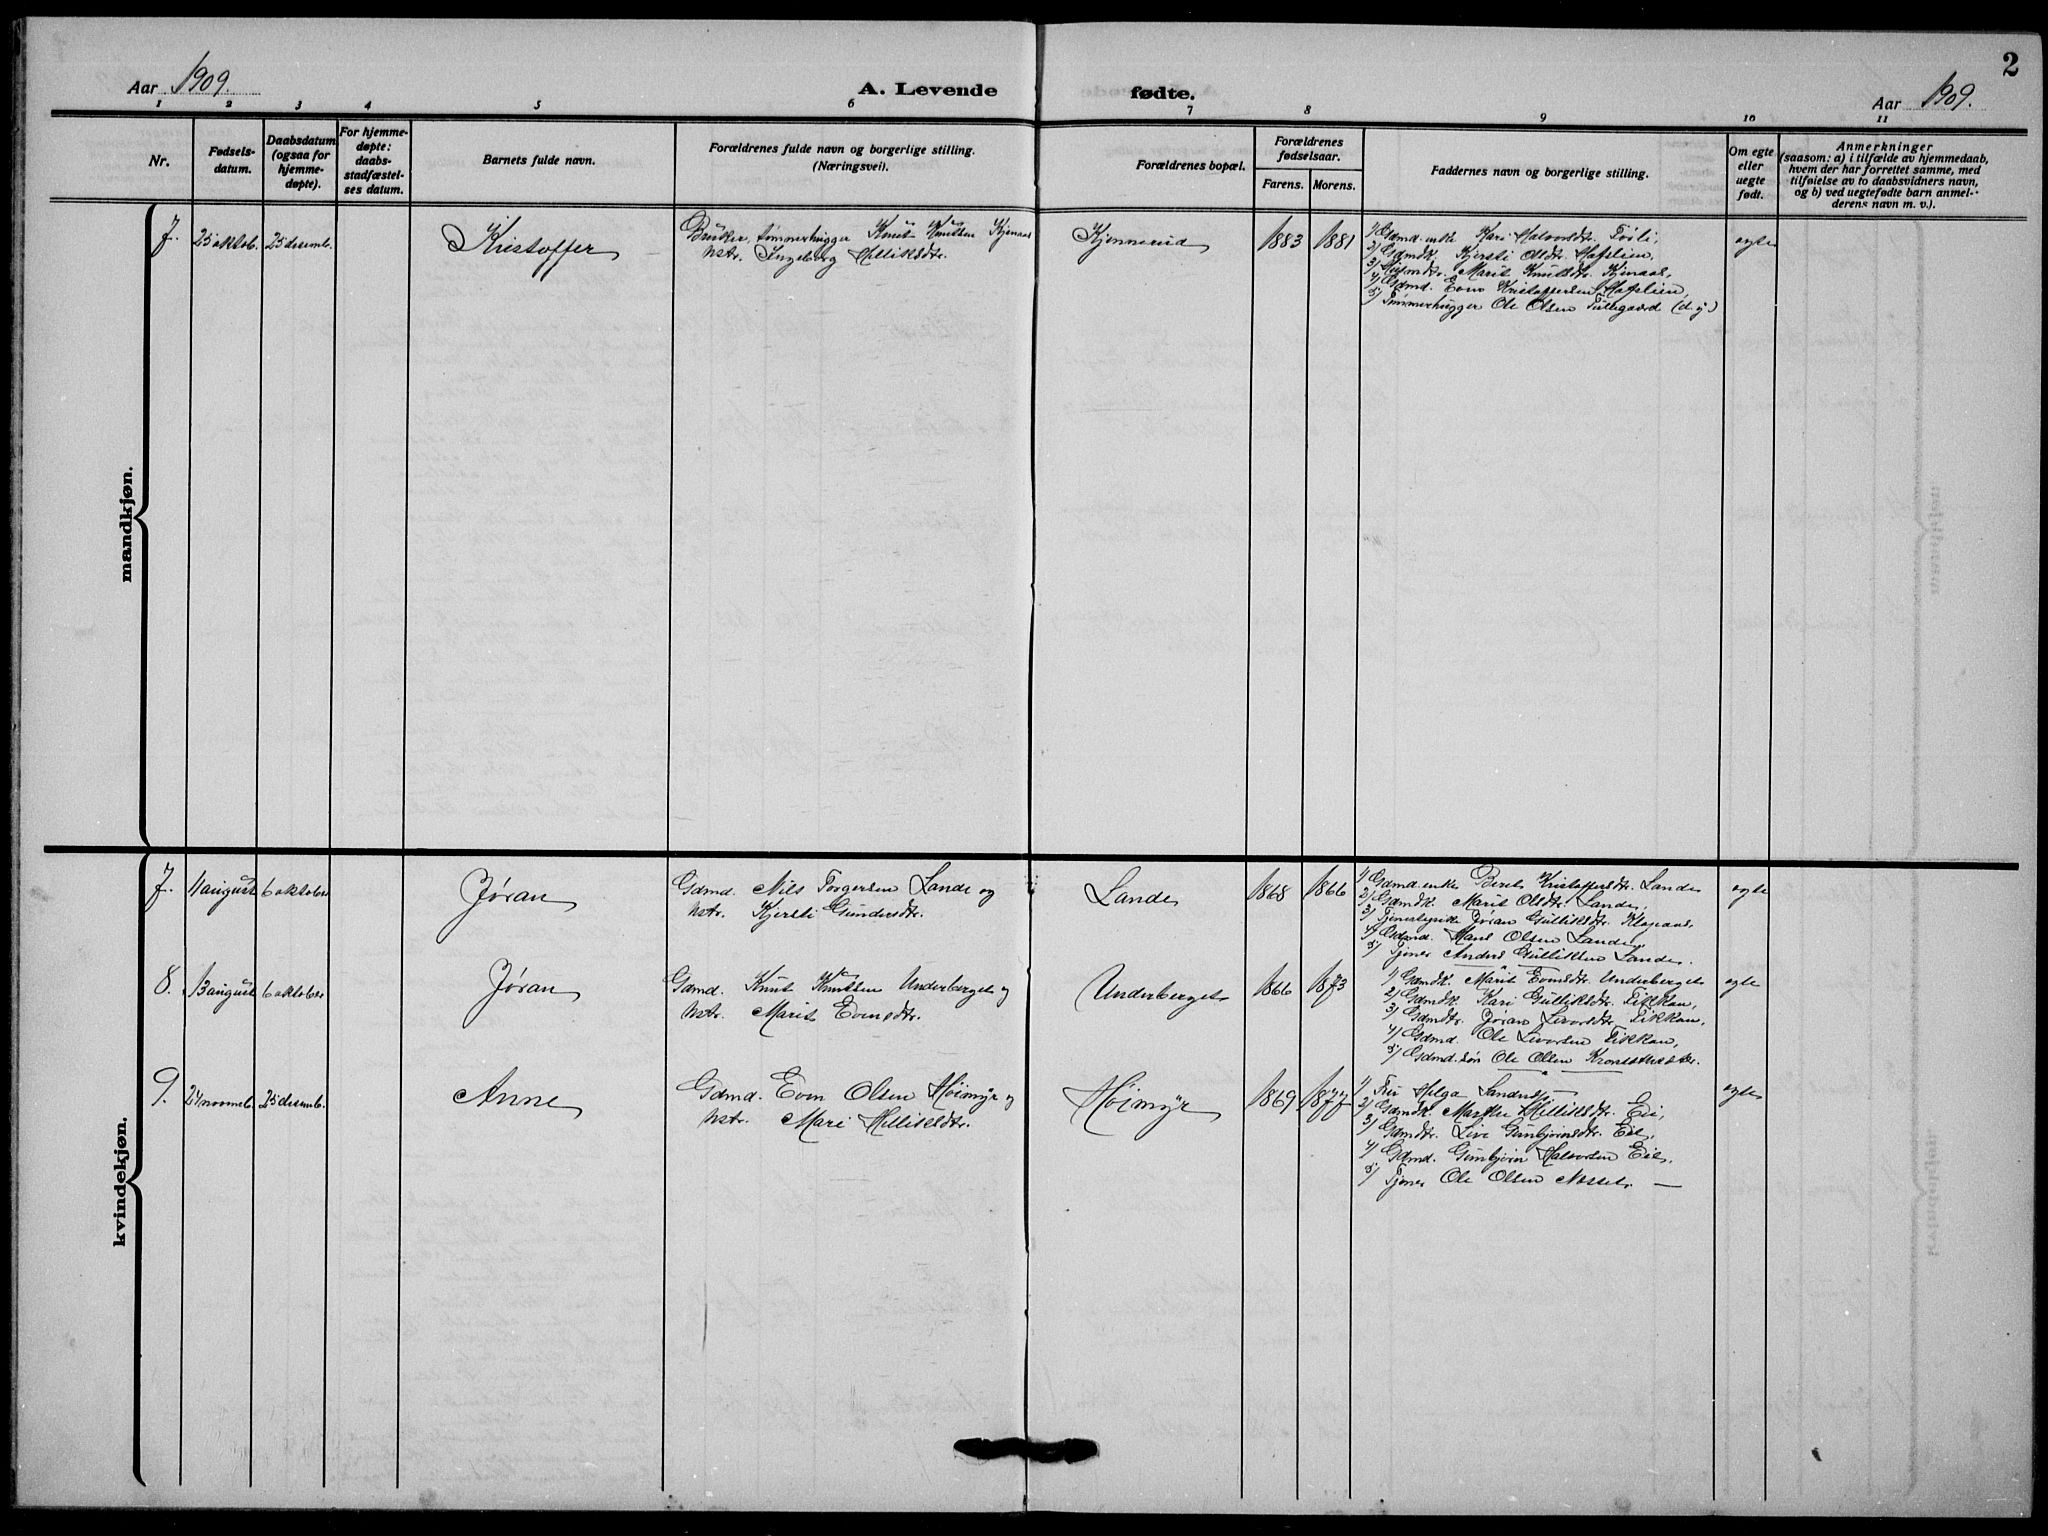 2
Aar 1909.
A. Levende fødte.
Aar 1909.
1 2 3 4 5 6 7 8 9 10 11
Nr.
Fødsels-
datum.
Daabsdatum
(ogsaa for
hjemme-
døpte).
For hjemme-
døpte:
daabs-
stadfæstel-
ses datum.
Barnets fulde navn.
Forældrenes fulde navn og borgerlige stilling.
(Næringsvei).
Forældrenes bopæl.
Forældrenes
fødselsaar.
Farens. Morens.
Faddernes navn og borgerlige stilling.
Om egte
eller
uegte
født.
Anmerkninger
(saasom: a) i tilfælde av hjemmedaab,
hvem der har forrettet samme, med
tilføielse av to daabsvidners navn,
og b) ved uegtefødte barn anmel-
derens navn m. v.).
mandkjøn.
7. 25 oktob. 25 desemb.
Kristoffer
Bruker, tømmerhugger Knut Knutsen Kjenaas
hstr. Ingeborg Helliksdtr.
Kjennerud
1883 1881
1) Gdmd.enke Kari Halvorsdtr. Tøsli,
2) Gdmdk. Kjersti Olsdtr. Haflien,
3) Marit Knutsdtr. Kjenaas,
4) Gdmd. Even Kristoffersen Haflien,
5) Tømmerhugger Ole Olsen (d.y.)
egte
kvindekjøn.
7. 11 august 6 oktober
Jøran
Gdmd. Nils Torgersen Lande og
hstr. Kjersti Gundersdtr.
Lande
1868 1866
1) Gdmd.enke Berit Kristoffersdtr. Lande
2) Gdmdk. Marit Olsdtr. Lande,
3) Tjenestepike Jøran Gulliksdtr.
4) Gdmd. Hans Olsen Lande,
5) Tjener Anders Gulliksen Lande.
egte
8. 13 august 6 oktober
Jøran
Gdmd. Knut Knutsen Underberget og
hstr. Marit Evensdtr.
Underberget
1866 1873
1) Gdmdk. Marit Evensdtr. Underberget
2) Gdmdk. Kari Gulliksdtr. Fikkan,
3) Gdmdtr. Jøran Livorsdtr. Fikkan,
4) Gdmd. Ole Livorsen Fikkan,
5) Gdmd.søn Ole Olsen
egte
9. 24 novemb. 25 desemb.
Anne
Gdmd. Even Olsen Høimyr og
hstr. Mari Helliksdtr.
Høimyr
1869 1877
1) Fru Helga
2) Gdmdk. Marthe Helliksdtr. Eie,
3) Gdmdtr. Live Gunbjørnsdtr. Eie,
4) Gdmd. Gunbjørn Halvorsen Eie,
5) Tjener Ole Olsen Næsset. —
egte